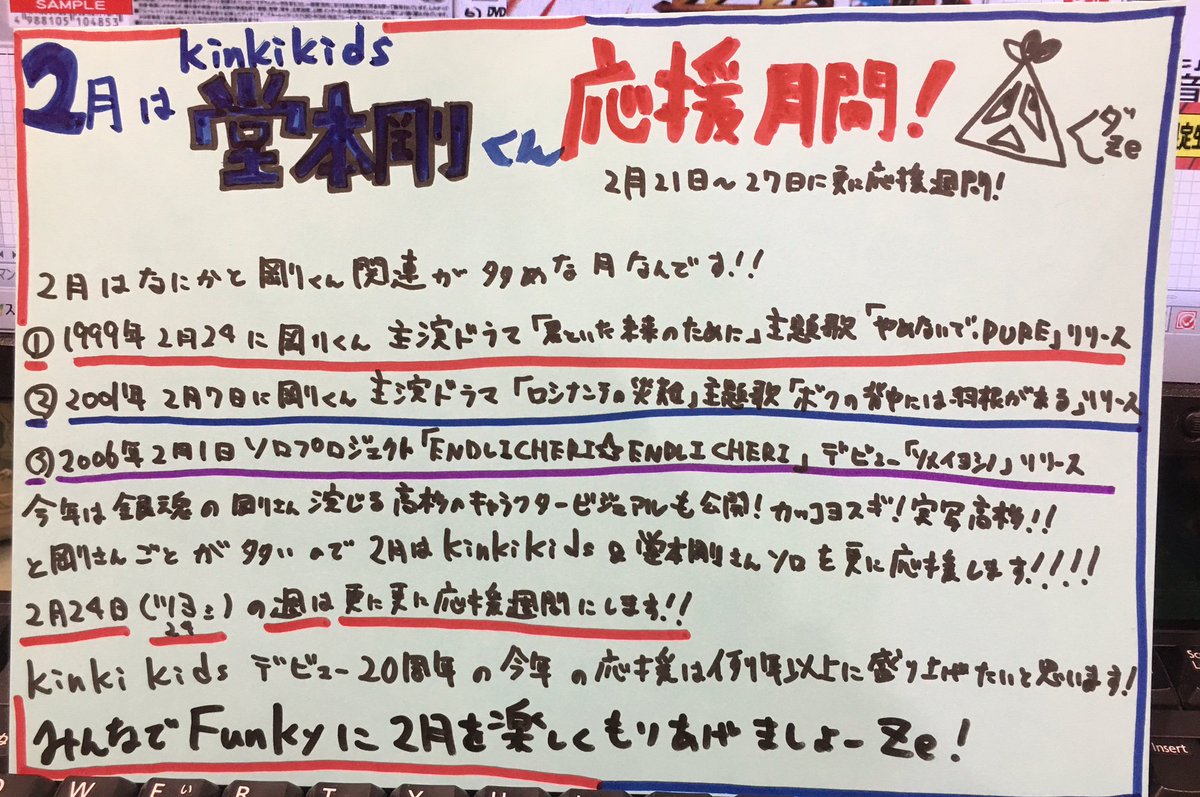 SAMPLE
4 988105 104853
DVD
2月は kinkikids 堂本剛くん 応援月間!
くダZe
2月21日~27日に更に応援週間!
2月はなにかと剛くん関連が多めな月なんです!!
① 1999年2月24に剛くん 主演ドラマ「君といた未来のために」主題歌「やめないで,PURE」リリース
② 2001年 2月7日に剛くん 主演ドラマ「ロシナンテの災難」主題歌「ボクの背中には羽根がある」リリース
③ 2006年2月1日 ソロプロジェクト「ENDLICHERI☆ENDLICHERI」デビュー「ソメイヨシノ」リリース
今年は銀魂の剛さん演じる高杉のキャラクタービジュアルも公開!カッコヨスギ!実写高杉!!
と剛さんごとが多いので2月はkinkikids&堂本剛さんソロを更に応援します!!!!
2月24日(ツヨシ)の週は更に更に応援週間にします!!
24
kinki kids デビュー20周年の今年の応援は例年以上に盛り上げたいと思います!
みんなでFunkyに2月を楽しくもりあげましょーZe!
W E い R T Y U
Insert